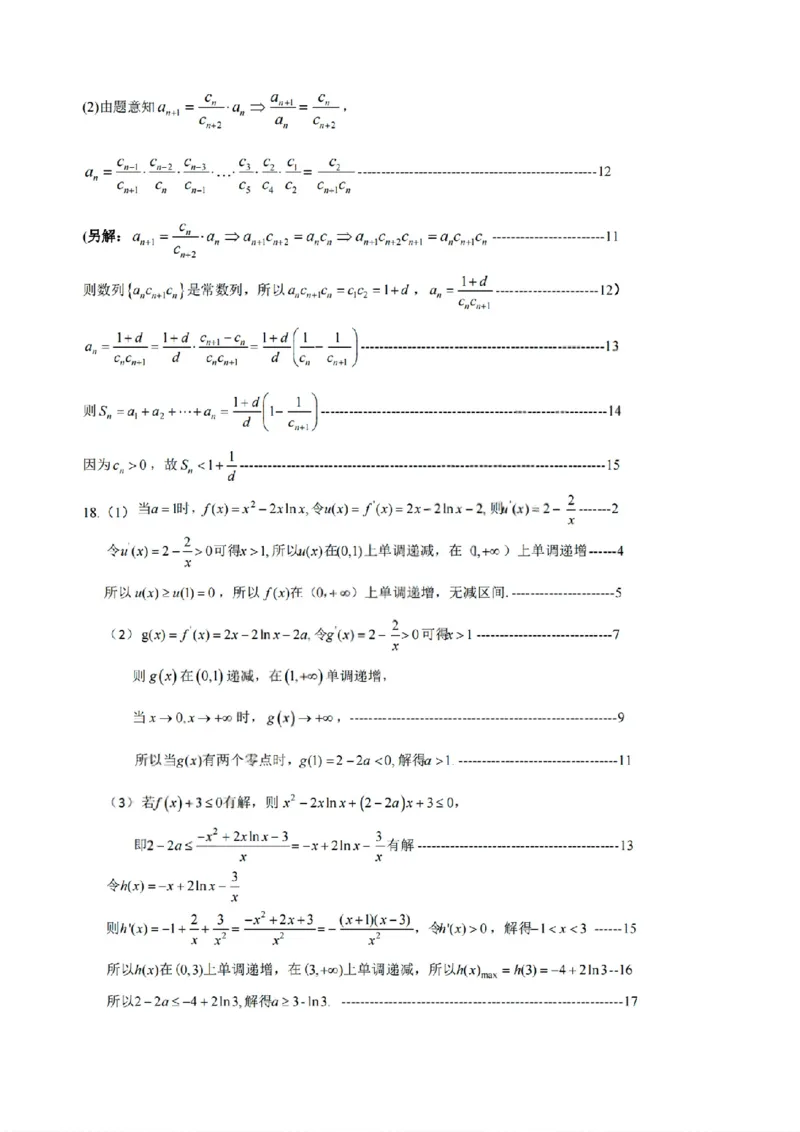 (2)由题意知 $a_{n+1}=\frac{c_n}{c_{n+2}}\cdot a_n\Rightarrow\frac{a_{n+1}}{a_n}=\frac{c_n}{c_{n+2}}$，
$a_n=\frac{c_{n-1}}{c_{n+1}}\cdot\frac{c_{n-2}}{c_n}\cdot\frac{c_{n-3}}{c_{n-1}}\cdot\ldots\cdot\frac{c_3}{c_5}\cdot\frac{c_2}{c_4}\cdot\frac{c_1}{c_2}=\frac{c_2}{c_{n+1}c_n}$ ------12
(另解：$a_{n+1}=\frac{c_n}{c_{n+2}}\cdot a_n\Rightarrow a_{n+1}c_{n+2}=a_nc_n\Rightarrow a_{n+1}c_{n+2}c_{n+1}=a_nc_{n+1}c_n$ ------11
则数列$\{a_nc_{n+1}c_n\}$是常数列，所以$a_nc_{n+1}c_n=c_1c_2=1+d$，$a_n=\frac{1+d}{c_nc_{n+1}}$ ------12）
$a_n=\frac{1+d}{c_nc_{n+1}}=\frac{1+d}{d}\cdot\frac{c_{n+1}-c_n}{c_nc_{n+1}}=\frac{1+d}{d}\left(\frac{1}{c_n}-\frac{1}{c_{n+1}}\right)$ ------13
则$S_n=a_1+a_2+\cdots+a_n=\frac{1+d}{d}\left(1-\frac{1}{c_{n+1}}\right)$ ------14
因为$c_n>0$，故$S_n<1+\frac{1}{d}$ ------15
18.（1）当$a=1$时，$f(x)=x^2-2x\ln x$,令$u(x)=f'(x)=2x-2\ln x-2$,则$u'(x)=2-\frac{2}{x}$ ------2
令$u'(x)=2-\frac{2}{x}>0$可得$x>1$,所以$u(x)$在(0,1)上单调递减，在（$1,+\infty$）上单调递增------4
所以$u(x)\geq u(1)=0$，所以$f(x)$在（0，$+\infty$）上单调递增，无减区间.------5
（2）$g(x)=f'(x)=2x-2\ln x-2a$,令$g'(x)=2-\frac{2}{x}>0$可得$x>1$ ------7
则$g(x)$在$(0,1)$递减，在$(1,+\infty)$单调递增，
当$x\to0,x\to+\infty$时，$g(x)\to+\infty$，------9
所以当$g(x)$有两个零点时，$g(1)=2-2a<0$,解得$a>1$.------11
（3）若$f(x)+3\leq0$有解，则$x^2-2x\ln x+(2-2a)x+3\leq0$，
即$2-2a\leq\frac{-x^2+2x\ln x-3}{x}=-x+2\ln x-\frac{3}{x}$有解------13
令$h(x)=-x+2\ln x-\frac{3}{x}$
则$h'(x)=-1+\frac{2}{x}+\frac{3}{x^2}=\frac{-x^2+2x+3}{x^2}=-\frac{(x+1)(x-3)}{x^2}$，令$h'(x)>0$，解得$-1<x<3$ ------15
所以$h(x)$在(0,3)上单调递增，在$(3,+\infty)$上单调递减，所以$h(x)_{\max}=h(3)=-4+2\ln3$--16
所以$2-2a\leq-4+2\ln3$,解得$a\geq3-\ln3$. ------17